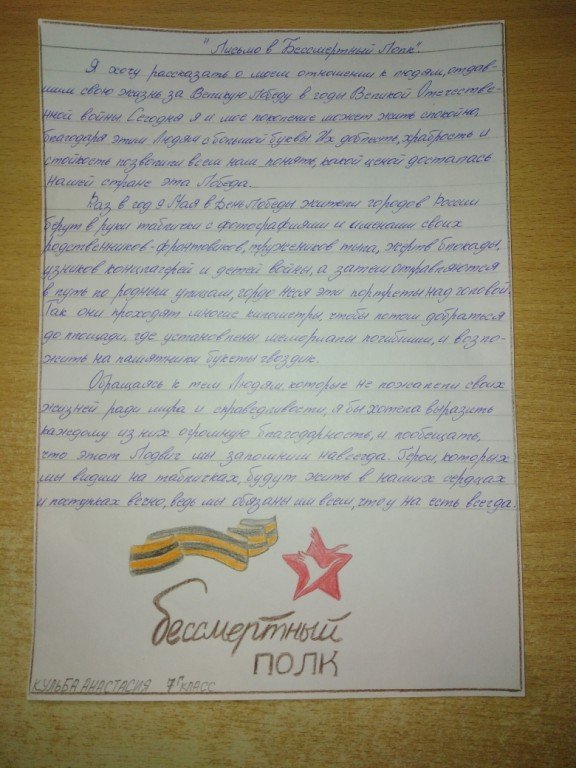 "Письмо в Бессмертный Полк".
Я хочу рассказать о моем отношении к людям, отдав-
шим свою жизнь за Великую Победу в годы Великой Отечестве-
нной войны. Сегодня я и мое поколение может жить спокойно,
благодаря этим Людям с большой буквы. Их доблесть, храбрость и
стойкость позволили всем нам понять, какой ценой досталась
нашей стране эта Победа.
Раз в год 9 Мая в День Победы жители городов России
берут в руки таблички с фотографиями и именами своих
родственников-фронтовиков, тружеников тыла, жертв блокады,
узников концлагерей и детей войны, а затем отправляются
в путь по родным улицам, гордо неся эти портреты над головой.
Так они проходят многие километры, чтобы потом добраться
до площади, где установлены мемориалы погибшим, и возло-
жить на памятники букеты гвоздик.
Обращаясь к тем Людям, которые не пожалели своих
жизней ради мира и справедливости, я бы хотела выразить
каждому из них огромную благодарность, и пообещать,
что этот Подвиг мы запомним навсегда. Герои, которых
мы видим на табличках, будут жить в наших сердцах
и поступках вечно, ведь мы обязаны им всем, что у на есть всегда.
бессмертный
ПОЛК
КУЛЬБА АНАСТАСИЯ 7Г КЛАСС